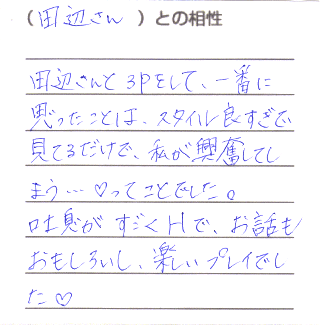 (田辺さん)との相性
田辺さんと3Pをして、一番に
思ったことは、スタイル良すぎで
見てるだけで、私が興奮してし
まう…♡ってことでした。
吐息がすごくHで、お話も
おもしろいし、楽しいプレイでし
た♡